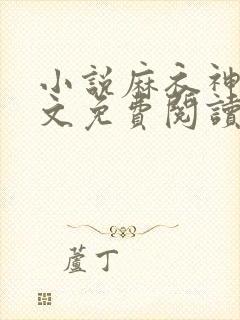 小說麻衣神
文免費閱讀
蘆丁